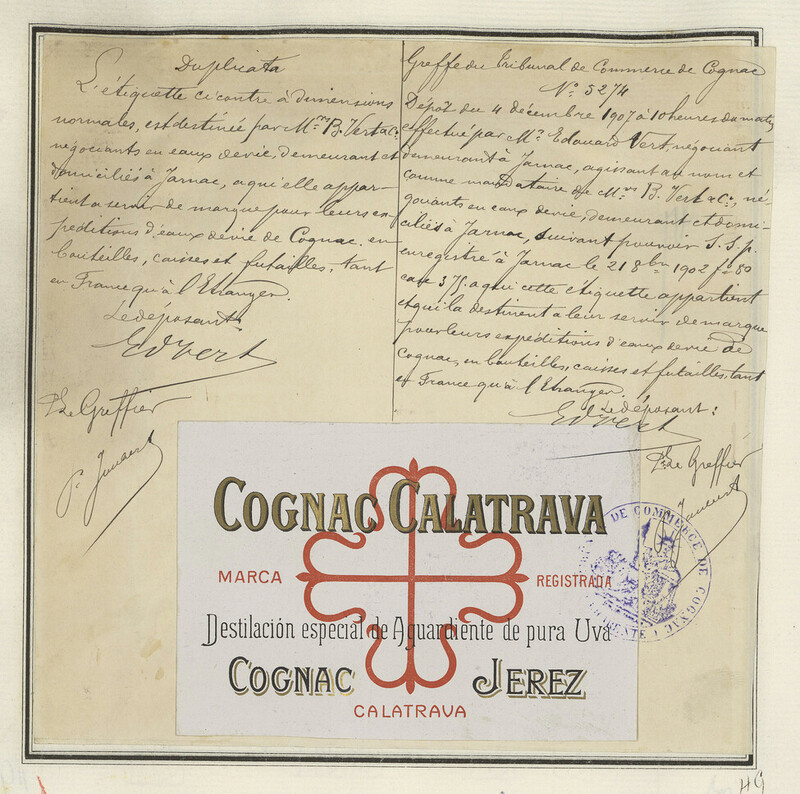 Duplicata
L'étiquette ci contre à dimensions
normales, est destinée par M.rs B. Vert & Cº.
négociants en eaux de vie, demeurant et
domiciliés à Jarnac, a qui elle appar-
tient a servir de marque pour leurs ex-
péditions d'eaux de vie de Cognac. en
bouteilles, caisses et futailles, tant
en France qu'à l'Etranger.
Le déposant
Ed Vert
Le Greffier
Greffe du Tribunal de Commerce de Cognac
Nº 5274
Dépot du 4 décembre 1907 à 10 heures du matin
effectué par M.r Edouard Vert, négociant
demeurant à Jarnac, agissant au nom et
comme mandataire de M.rs B. Vert & Cº, né-
gociants, en eaux de vie, demeurant et domi-
ciliés à Jarnac, suivant pouvoir S.S.p.
enregistré à Jarnac le 21 8bre 1902 fº 80
case 375, a qui cette étiquette appartient
et qui la destinent a leur servir de marque
pour leurs expéditions d'eaux de vie de
Cognac, en bouteilles, caisses et futailles, tant
en France qu'à l'Etranger.
Le déposant:
Ed Vert
Le Greffier
COGNAC CALATRAVA
MARCA REGISTRADA
Destilación especial de Aguardiente de pura Uva
COGNAC JEREZ
CALATRAVA
DE COMMERCE DE COGNAC
49